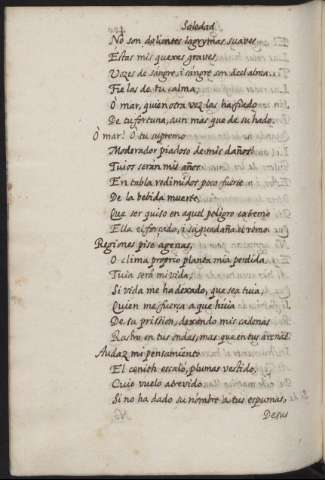 Soledad
No son dolientes lagrymas suaues
Estas mis quexas graues
Vozes de sangre, i sangre son del alma.
Fielas de tu calma,
O mar, quien otra vez las ha fiado
De tu fortuna, aun mas que de su hado.
O mar! O tu supremo
Moderador piadoso de mis daños!
Tuios seran mis años
En tabla redimidos poco fuerte
De la bebida muerte,
Que ser quiso en aquel peligro extremo
Ella el forçado, i su guadaña el remo.
Regiones pise agenas,
O clima proprio planta mia perdida,
Tuia será mi vida,
Si vida me ha dexado, que sea tuia,
Quien me fuerça a que huia
De su prission, dexando mis cadenas
Rastro en tus ondas, mas que en tus arenas.
Audaz mi pensamiento
El cenith escaló, plumas vestido,
Cuio vuelo atrevido
Si no ha dado su nombre a tus espumas,
De sus